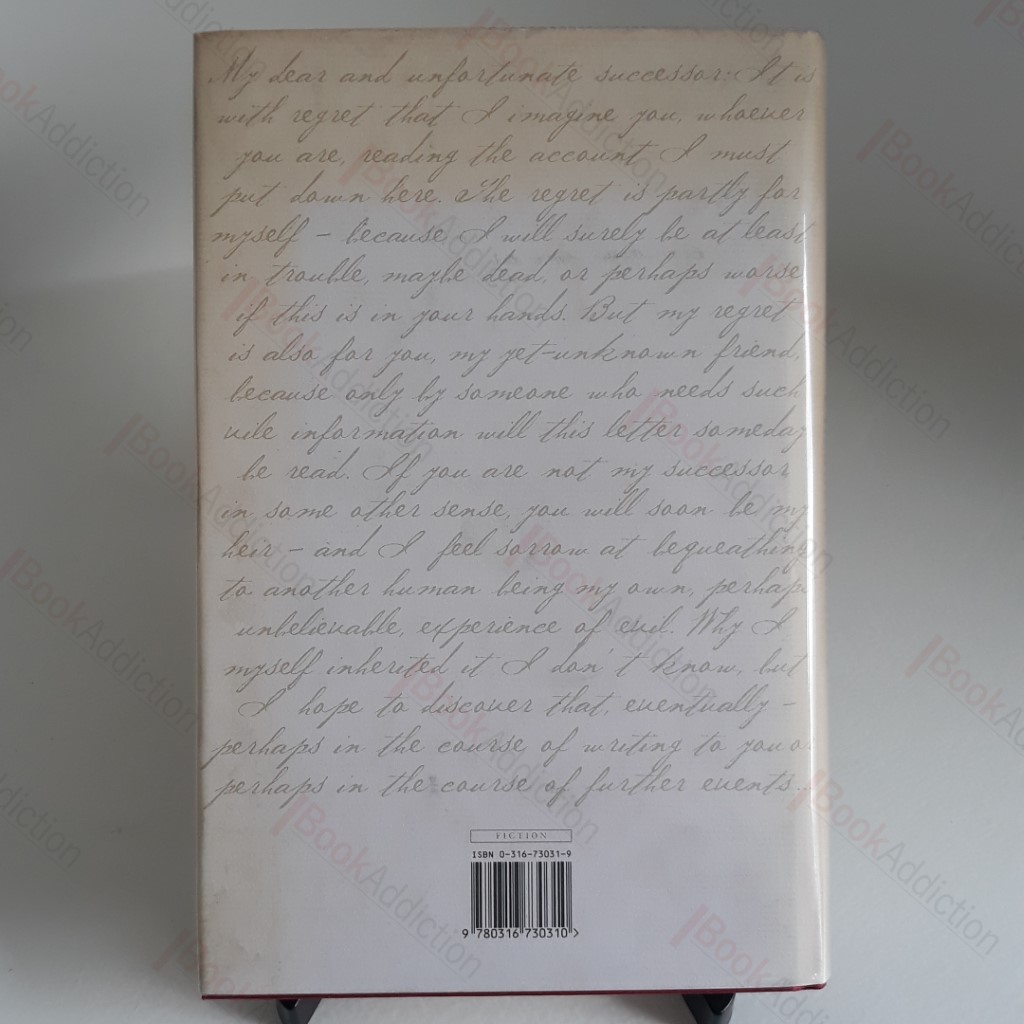 My dear and unfortunate successor: It is
with regret that I imagine you, whoever
you are, reading the account I must
put down here. The regret is partly for
myself – because I will surely be at least
in trouble, maybe dead, or perhaps worse
if this is in your hands. But my regret
is also for you, my yet-unknown friend,
because only by someone who needs such
vile information will this letter someday
be read. If you are not my successor
in some other sense, you will soon be my
heir – and I feel sorrow at bequeathing
to another human being my own, perhaps
unbelievable, experience of evil. Why I
myself inherited it I don't know, but
I hope to discover that, eventually –
perhaps in the course of writing to you or
perhaps in the course of further events...
FICTION
ISBN 0-316-73031-9
9 780316 730310 >
BookAddiction